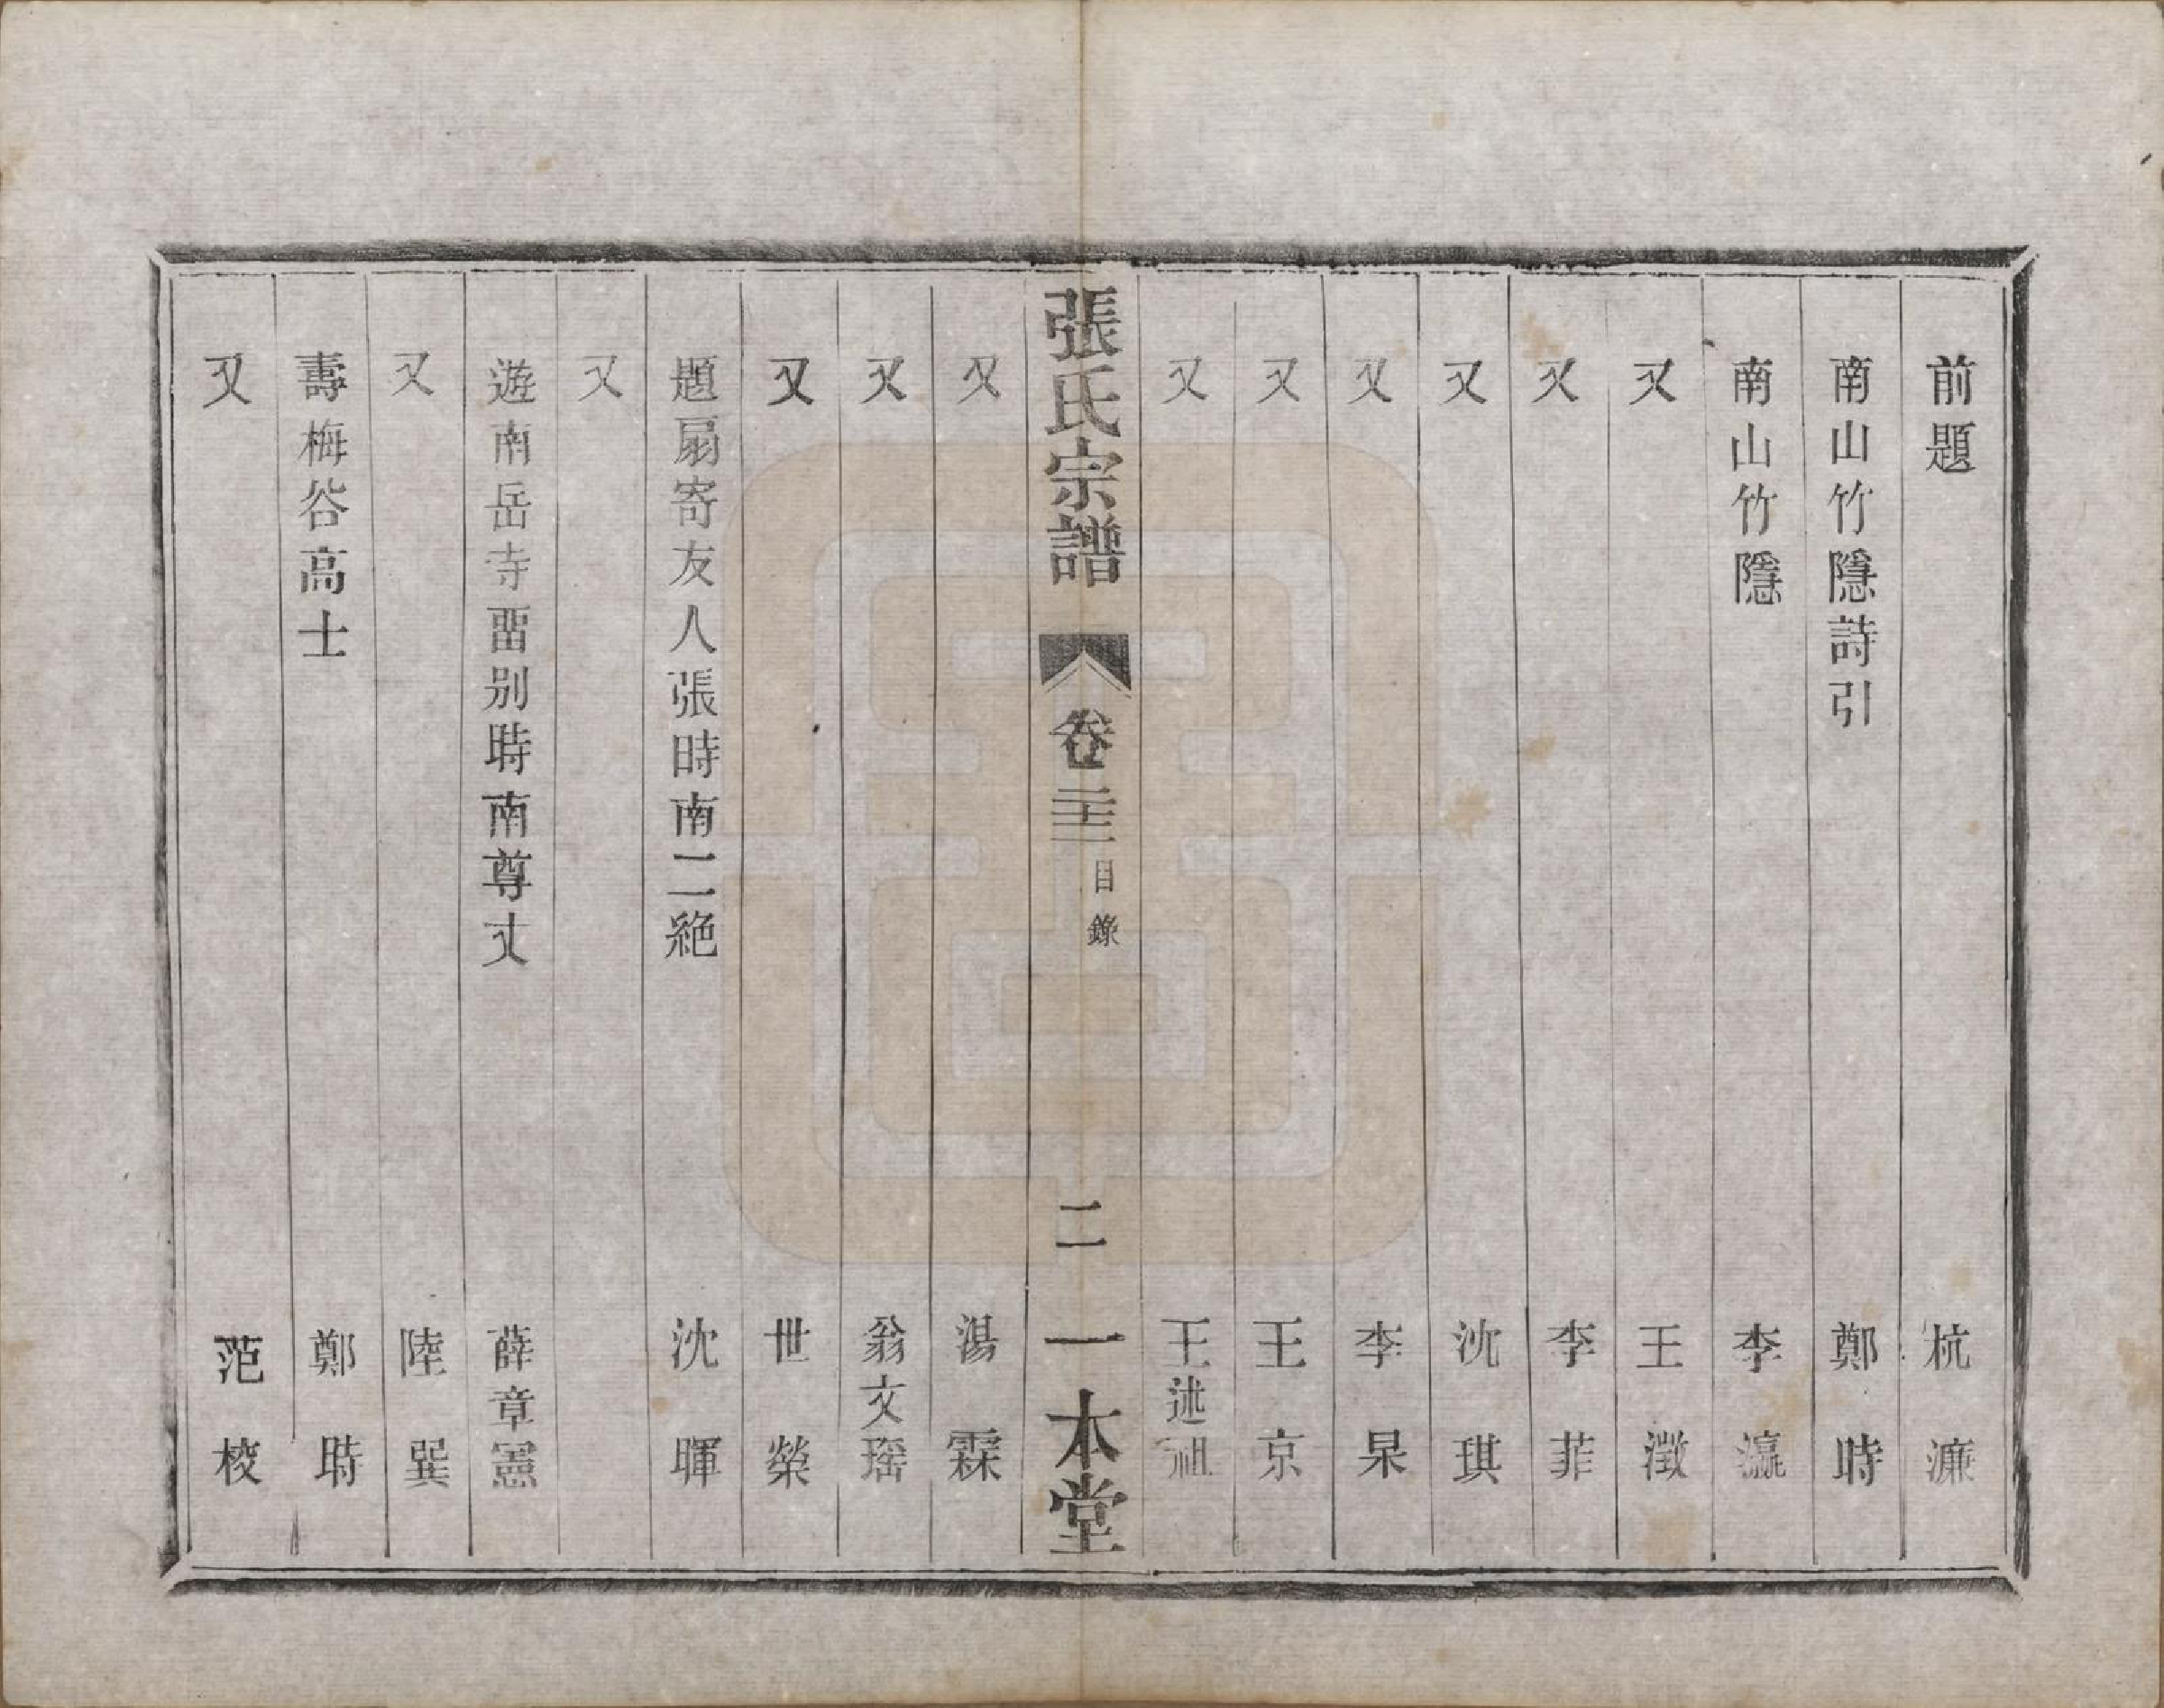 前題　杭濂
南山竹隱詩引　鄭時
南山竹隱　李瀛
又　王澂
又　李菲
又　沈琪
又　李杲
又　王京
又　王述祖
張氏宗譜　卷二十三　目錄　二　一本堂
又　湯霖
又　翁文瑤
又　世榮
題扇寄友人張時南二絕　沈暉
又
遊南岳寺畱別時南尊丈　薛章憲
又　陸巽
壽梅谷高士　鄭時
又　范棱